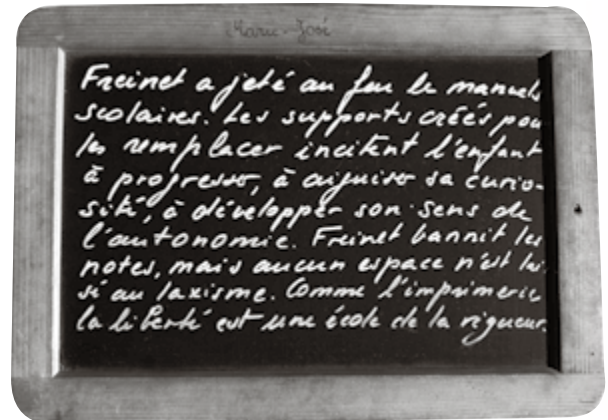 Marie-José
Freinet a jeté au feu le manuels
scolaires. Les supports créés pour
les remplacer incitent l'enfant
à progresser, à aiguiser sa curio-
sité, à développer son sens de
l'autonomie. Freinet bannit les
notes, mais aucun espace n'est lais-
sé au laxisme. Comme l'imprimerie
la liberté est une école de la rigueur.